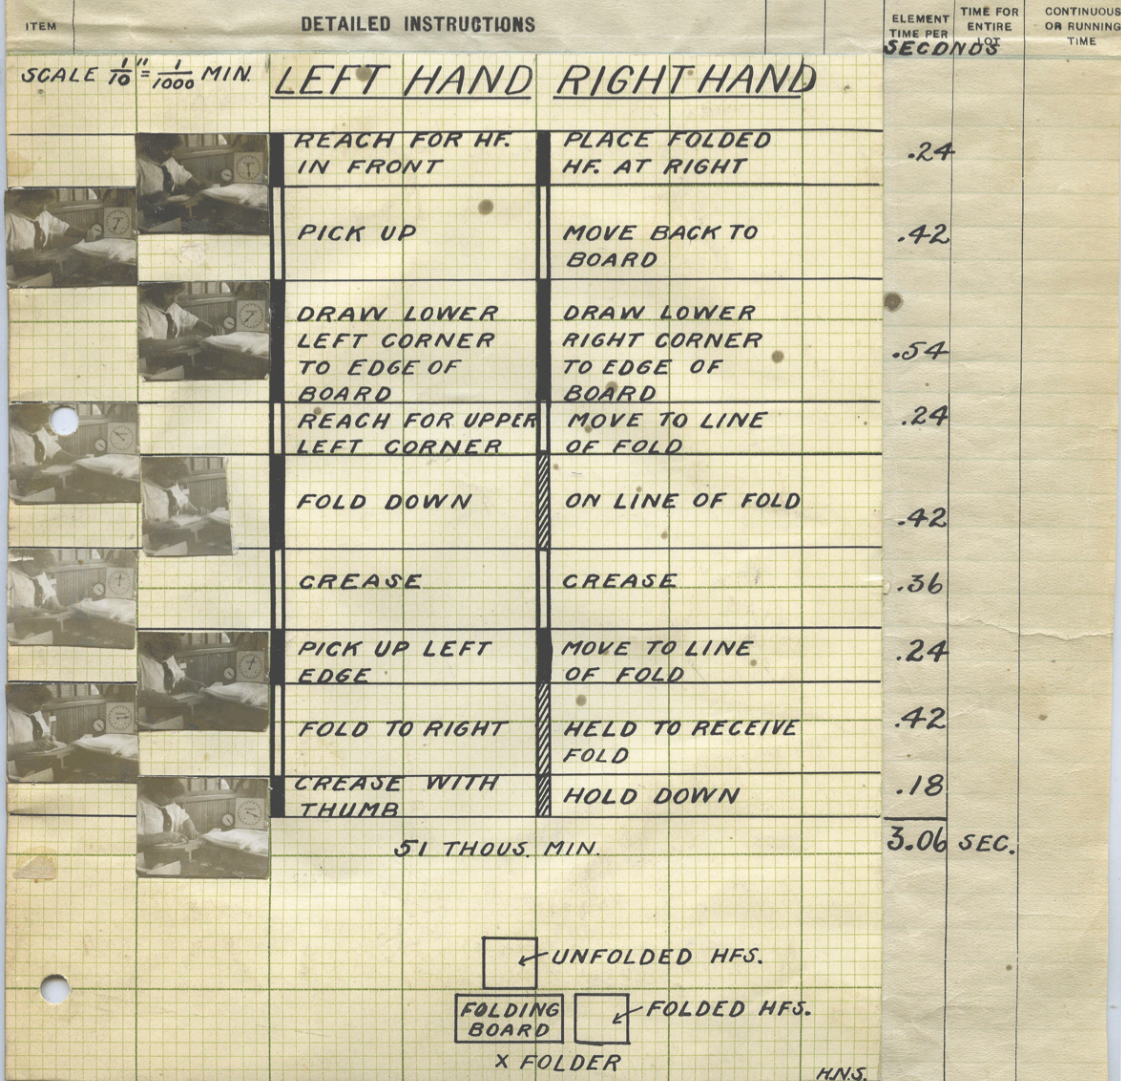 ITEM
DETAILED INSTRUCTIONS
ELEMENT
TIME PER
SECONDS
TIME FOR
ENTIRE
LOT
CONTINUOUS
OR RUNNING
TIME
SCALE 1/10" = 1/1000 MIN.
LEFT HAND
RIGHT HAND
REACH FOR HF.
IN FRONT
PLACE FOLDED
HF. AT RIGHT
.24
PICK UP
MOVE BACK TO
BOARD
.42
DRAW LOWER
LEFT CORNER
TO EDGE OF
BOARD
DRAW LOWER
RIGHT CORNER
TO EDGE OF
BOARD
.54
REACH FOR UPPER
LEFT CORNER
MOVE TO LINE
OF FOLD
.24
FOLD DOWN
ON LINE OF FOLD
.42
CREASE
CREASE
.36
PICK UP LEFT
EDGE
MOVE TO LINE
OF FOLD
.24
FOLD TO RIGHT
HELD TO RECEIVE
FOLD
.42
CREASE WITH
THUMB
HOLD DOWN
.18
51 THOUS. MIN.
3.06 SEC.
UNFOLDED HFS.
FOLDING
BOARD
FOLDED HFS.
X FOLDER
H.N.S.